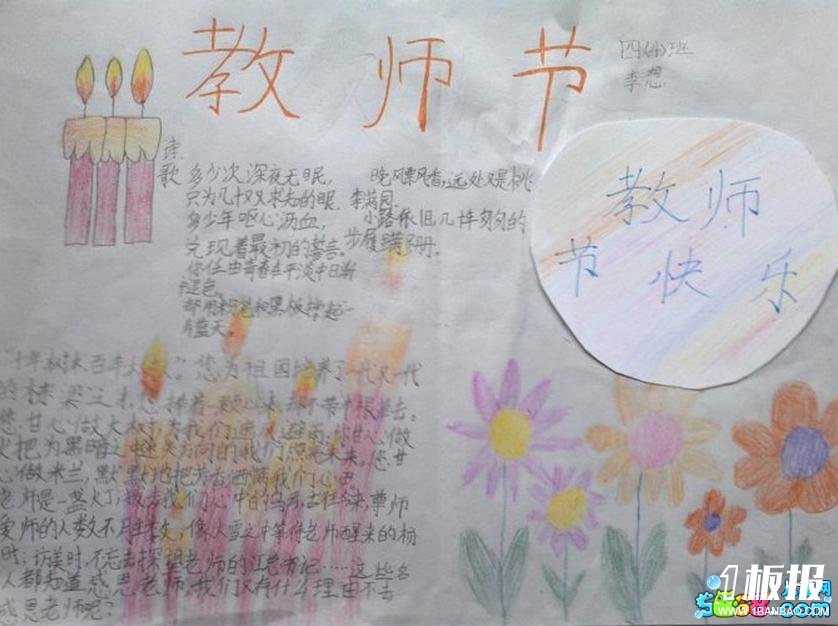 教师节
四(4)班
李想
颂歌
多少次深夜无眠,
只为几十双求知的眼.
多少年呕心沥血,
兑现着最初的誓言。
你任由青春在平淡中日渐
褪色。
却用粉笔和黑板撑起一
片蓝天。
晚风飘香,远处又是桃
李满园.
小路依旧几十年匆匆的
步履蹒跚。
教师
节快乐
"十年树木,百年树人。"您为祖国培养了一代又一代
的栋梁之才,您捧着一颗心来,却不带半根草去。
您甘心做大树,为我们遮风避雨,您甘心做
火把,为黑暗之中迷失方向的我们照亮未来。您甘
心做米兰,默默地把芳香洒满我们心田。
老师是一盏灯,
古往今来,尊师
爱师的人数不胜数,像大雪之中等待老师醒来的杨
时;访美时,不忘去探望老师的江总书记……这些名
人都知道感恩老师,我们又有什么理由不去
感恩老师呢?
1板报
WWW.1BANBAO.COM